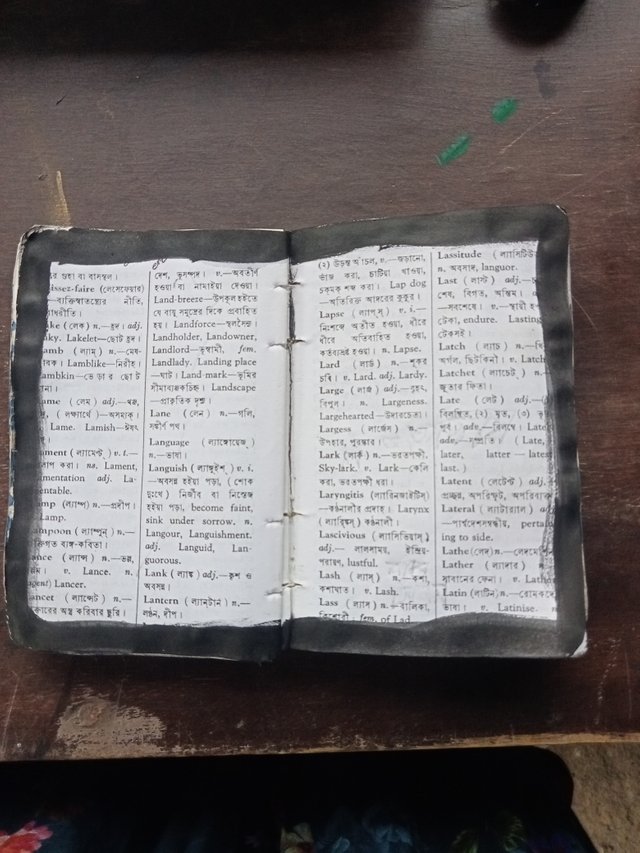 রে গুহা বা বাসস্থল।
issez-faire (লেসেফেয়ার)
—ব্যক্তিস্বাতন্ত্র্যের নীতি,
ke (লেক) n.—হ্রদ। adj.
ky. Lakelet—ছোট হ্রদ।
amb (ল্যাম) n.—মেষ-
বক। Lamblike—নিরীহ।
ambkin—ভেড়ার ছোট
ানা।
ame (লেম) adj.—খঞ্জ,
Lame. Lamish—ঈষৎ
ment (ল্যামেন্ট) v. t.—
লাপ করা। ns. Lament,
mentation adj. La-
entable.
mp (ল্যাম্প) n.—প্রদীপ।
Lamp.
mpoon (ল্যাম্পুন্) n.—
ক্তিগত ব্যঙ্গ-কবিতা।
ance (ল্যান্স) n.—ভল্ল,
v. Lance. n.
agent) Lancer.
ancet (ল্যান্সেট) n.—
ক্তারের অস্ত্র করিবার ছুরি।
দেশ, ভূসম্পদ। v.—অবতীর্ণ
হওয়া বা নামাইয়া দেওয়া।
Land-breeze—উপকূল হইতে
যে বায়ু সমুদ্রের দিকে প্রবাহিত
হয়। Landforce—স্থলসৈন্য।
Landholder, Landowner,
Landlord—ভূস্বামী, fem.
Landlady. Landing place
—ঘাট। Land-mark—ভূমির
সীমাব্যঞ্জকচিহ্ন। Landscape
—প্রাকৃতিক দৃশ্য।
Lane (লেন) n.—গলি,
সঙ্কীর্ণ পথ।
Language (ল্যাঙ্গোয়েজ)
n.—ভাষা।
Languish (ল্যাঙ্গুইশ্) v. i.
—অবসন্ন হইয়া পড়া, (শোক
দুঃখে) নির্জীব বা নিস্তেজ
হইয়া পড়া, become faint,
sink under sorrow. n.
Langour, Languishment.
adj. Languid, Lan-
guorous.
Lank (ল্যাঙ্ক) adj.—কৃশ ও
অবসন্ন।
Lantern (ল্যান্টার্ন) n.—
লণ্ঠন, দীপ।
(২) উড়ন্ত আঁচল, v.—জড়ানো,
ভাঁজ করা, চাটিয়া খাওয়া,
চকমক শব্দ করা। Lap dog
—অতিরিক্ত আদরের কুকুর।
Lapse (ল্যাপ্স্) v. i.—
নিঃশব্দে অতীত হওয়া, ধীরে
ধীরে অতিবাহিত হওয়া,
কর্তব্যভ্রষ্ট হওয়া। n. Lapse.
Lard (লার্ড) n.—শূকর
চর্বি। v. Lard. adj. Lardy.
Large (লার্জ) adj.—বৃহৎ,
বিপুল। n. Largeness.
Largehearted—উদারচেতা।
Largess (লার্জেস) n.—
উপহার, পুরস্কার।
Lark (লার্ক) n.—ভরতপক্ষী.
Sky-lark. v. Lark—কেলি
করা, ভরতপক্ষী ধরা।
Laryngitis (ল্যারিনজাইটিস্)
—কণ্ঠনালীর প্রদাহ। Larynx
(ল্যারিঙ্কস্) কণ্ঠনালী।
Lascivious (ল্যাসিভিয়াস্)
adj.— লালসাময়, ইন্দ্রিয়-
পরায়ণ, lustful.
Lash (ল্যাশ্) n.—কশা,
কশাঘাত। v. Lash.
Lass (ল্যাস্) n.—বালিকা,
কিশোরী। fem. of Lad.
Lassitude (ল্যাসিটিউ
n. অবসাদ, languor.
Last (লাস্ট) adj.—
শেষ, বিগত, অন্তিম।
—সবশেষে। v.—স্থায়ী হও
টেকা, endure. Lasting
টেকসই।
Latch (ল্যাচ) n.—
অর্গল, ছিটকিনী। v. Latch
Latchet (ল্যাচেট) n.—
জুতার ফিতা।
Late (লেট) adj.—(১)
বিলম্বিত, (২) মৃত, (৩)
পূর্ব। adv.—বিলম্বে। Lat
adv.—সম্প্রতি। (Late,
later, latter — latest
last.)
Latent (লেটেন্ট) adj.
প্রচ্ছন্ন, অপরিস্ফুট, অপরিব্যক্ত
Lateral (ল্যাটারাল) adj
—পার্শ্বদেশসম্বন্ধীয়, pertain
ing to side.
Lathe (লেদ) n.—লেদমেশি
Lather (ল্যাদার) n.
সাবানের ফেনা। v. Lathe
Latin (লাটিন) n.—রোমকদের
ভাষা। v. Latinise. n.